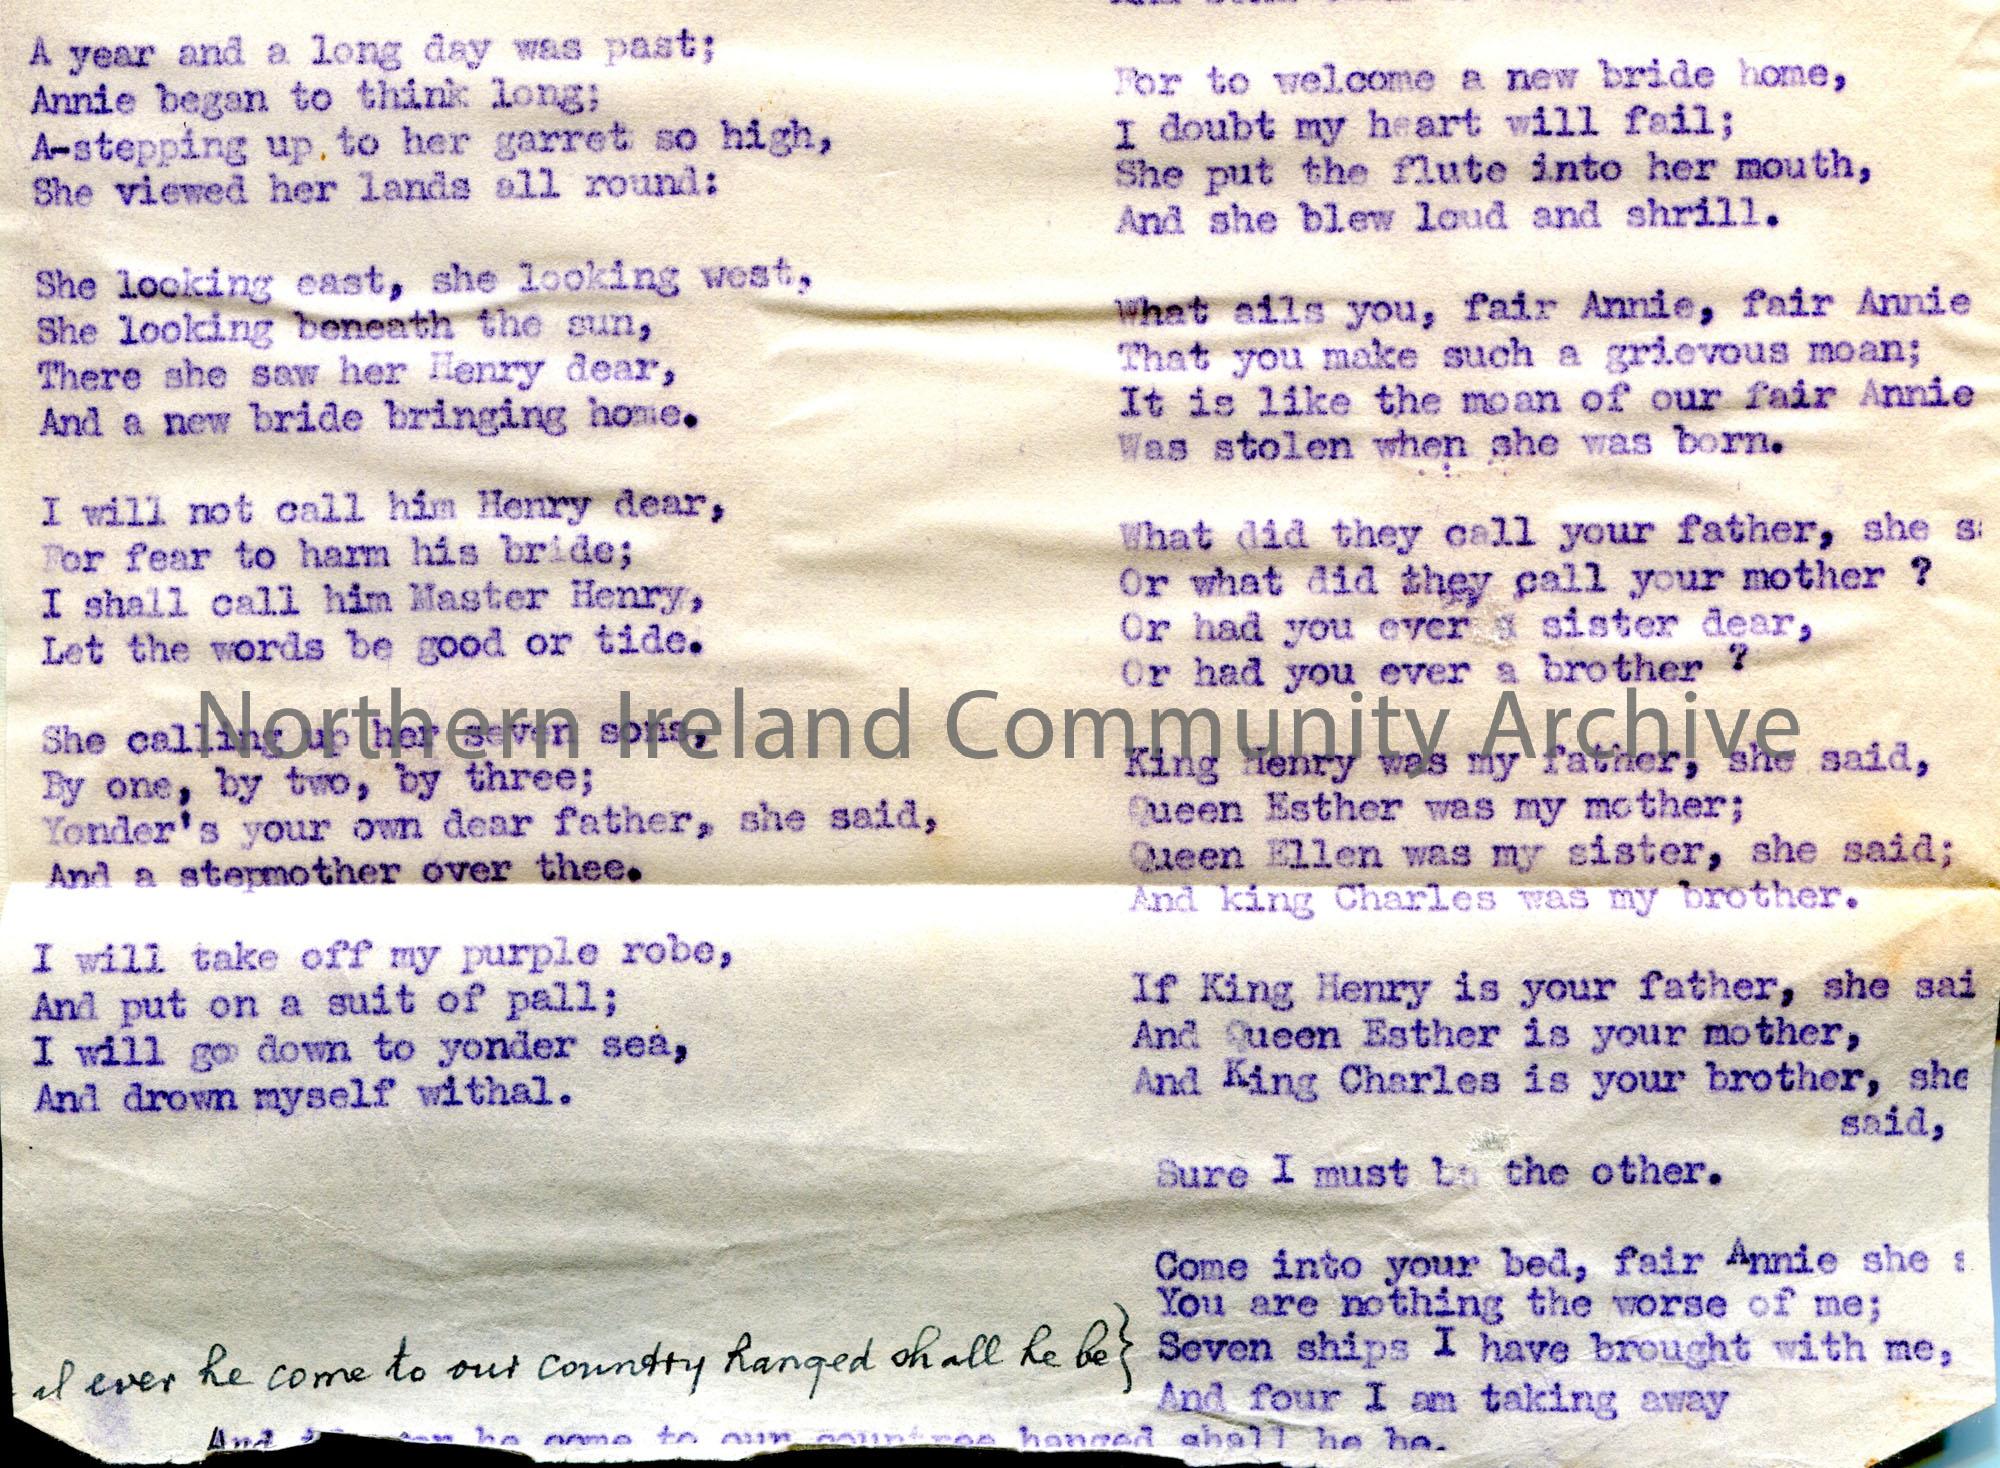 A year and a long day was past;
Annie began to think long;
A-stepping up to her garret so high,
She viewed her lands all round:
She looking east, she looking west,
She looking beneath the sun,
There she saw her Henry dear,
And a new bride bringing home.
I will not call him Henry dear,
For fear to harm his bride;
I shall call him Master Henry,
Let the words be good or tide.
She calling up her seven sons,
By one, by two, by three;
Yonder's your own dear father, she said,
And a stepmother over thee.
I will take off my purple robe,
And put on a suit of pall;
I will go down to yonder sea,
And drown myself withal.
For to welcome a new bride home,
I doubt my heart will fail;
She put the flute into her mouth,
And she blew loud and shrill.
What ails you, fair Annie, fair Annie
That you make such a grievous moan;
It is like the moan of our fair Annie
Was stolen when she was born.
What did they call your father, she
Or what did they call your mother ?
Or had you ever a sister dear,
Or had you ever a brother ?
King Henry was my father, she said,
Queen Esther was my mother;
Queen Ellen was my sister, she said;
And king Charles was my brother.
If King Henry is your father, she sai
And Queen Esther is your mother,
And King Charles is your brother, she
said,
Sure I must be the other.
Come into your bed, fair Annie she
You are nothing the worse of me;
Seven ships I have brought with me,
And four I am taking away
ever he come to our country hanged shall he be}
And he come to our countree hanged shall he be.
Northern Ireland Community Archive